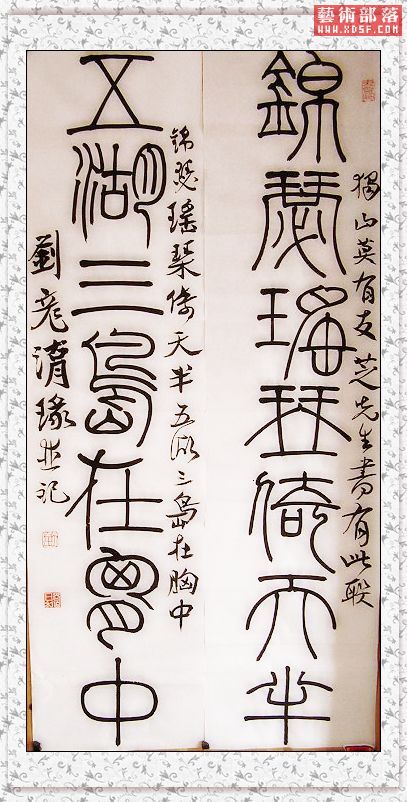 藝術部落
WWW.XDSF.COM
錦瑟瑤琹倚天半
獨山莫有友芝先生書有此聯
五湖三島在胸中
錦瑟瑤琹倚天半五湖三島在胸中
劉彪淯琭並記